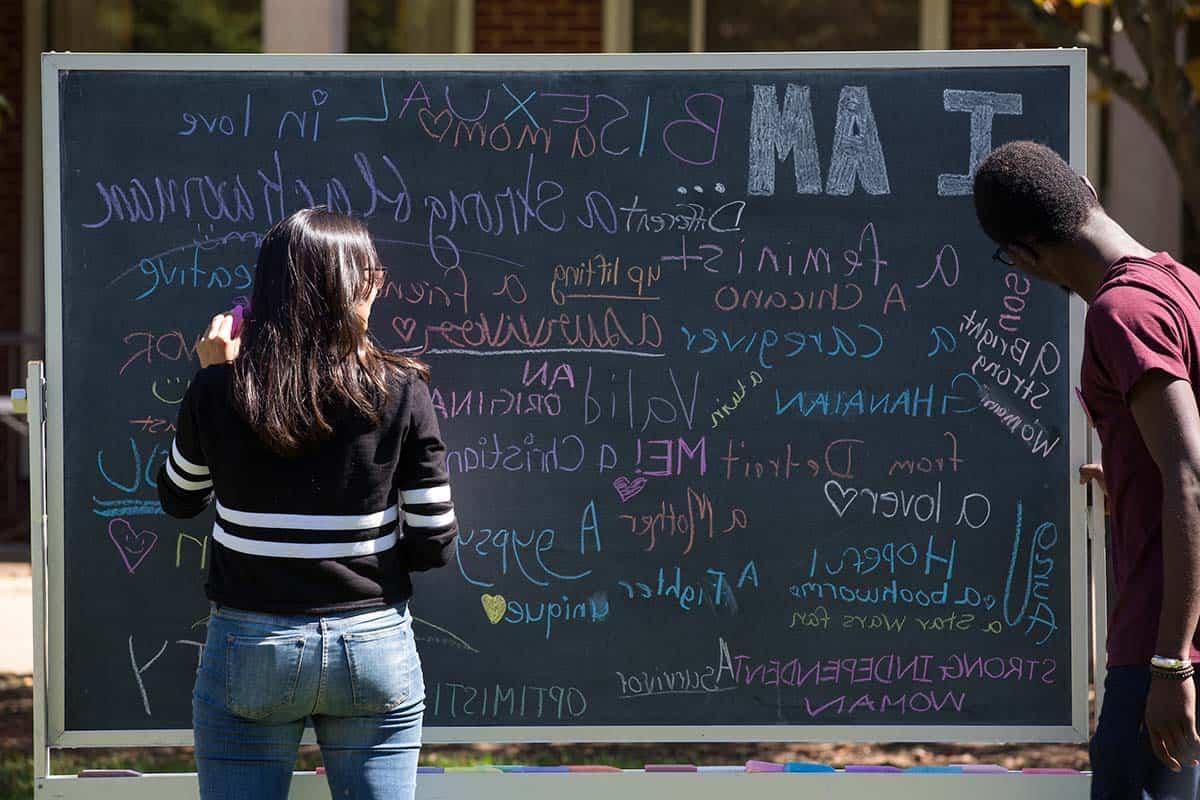 I AM ...
BISEXUAL
a mom
in love
Different
a strong black woman
a feminist
uplifting
creative
A Chicano
a friend
a caregiver
a survivor
a Bright
Strong
Woman
son
GHANAIAN
a twin
Valid
AN
ORIGINA
from Detroit
ME!
a Christian
a lover
a Mother
A gypsy
Hopeful
a bookworm
a Star Wars fan
A Fighter
unique
STRONG INDEPENDENT
WOMAN
A survivor
OPTIMISTI